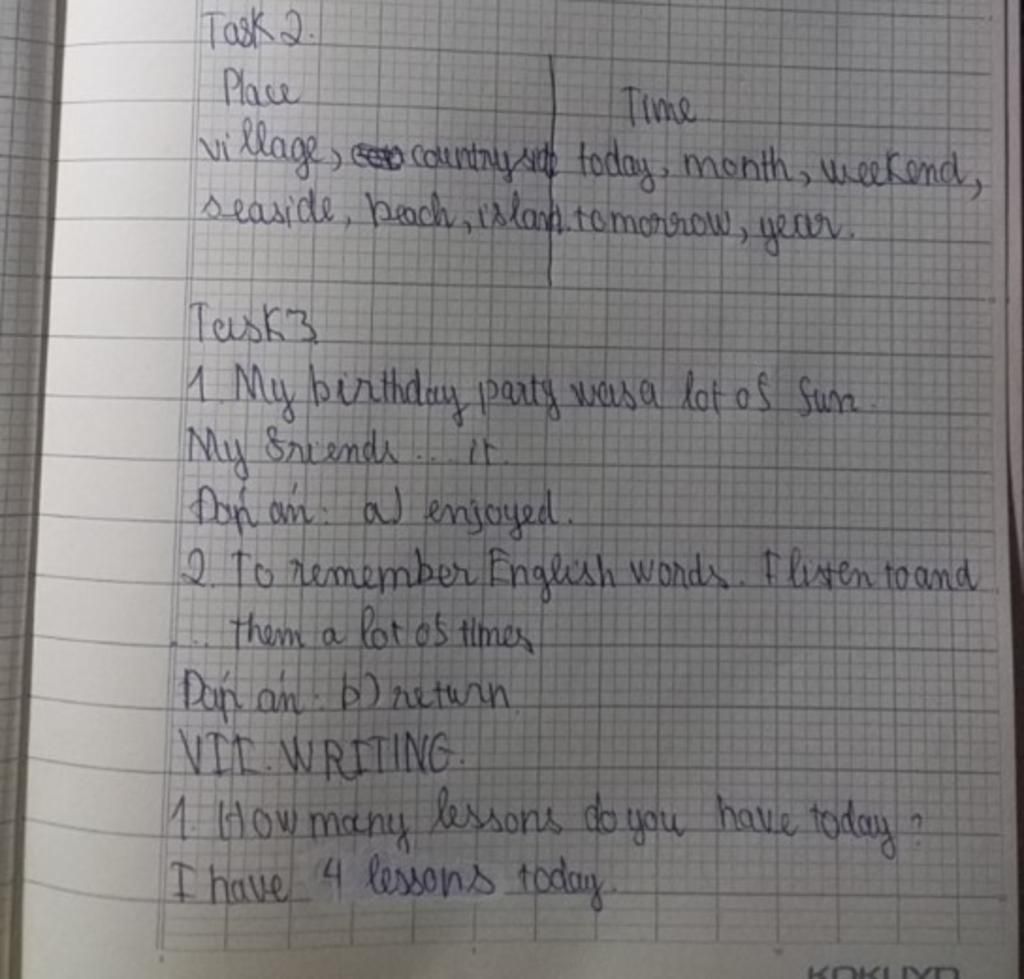 Task 2.
Place
Time
village, countrysi today, month, weekend,
seaside, beach, islan tomorrow, year.
Task 3
1 My birthday party was a lot of fun.
My friends ... it.
Đáp án: a) enjoyed.
2. To remember English words. I listen to and
... them a lot of times
Đáp án: b) return
VII. WRITING.
1. How many lessons do you have today?
I have 4 lessons today.
KOKUYO